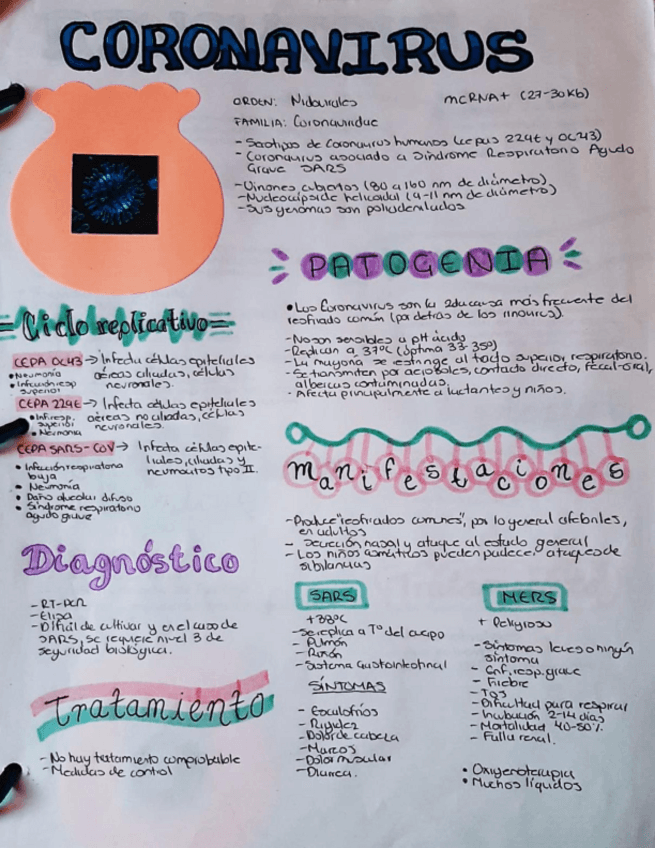 CORONAVIRUS
ORDEN: Nidovirales
mcRNA+ (27-30Kb)
FAMILIA: Coronaviridae
- Serotipos de Coronavirus humanos (cepas 229E y OC43)
- Coronavirus asociado a Síndrome Respiratorio Agudo
Grave SARS
- Viriones cubiertos (80 a 160 nm de diámetro)
- Nucleocápside helicoidal (9-11 nm de diámetro)
- Sus genomas son poliadenilados
PATOGENIA
• Los Coronavirus son la 2da causa más frecuente del
resfriado común (por detras de los rinovirus).
- No son sensibles a pH ácido
- Replican a 37°C (óptima 33-35°)
- La mayoría se restringe al tracto superior respiratorio.
- Se transmiten por aerosoles, contacto directo, fecal-oral,
albercas contaminadas.
- Afecta principalmente a lactantes y niños.
Ciclo replicativo
CEPA OC43 → Infecta células epiteliales
aéreas ciliadas, células
neuronales.
• Neumonía
• Infección resp
superior
CEPA 229E → Infecta células epiteliales
aéreas no ciliadas, células
neuronales.
• Inf. resp.
superior
• Neumonia
CEPA SARS-CoV → Infecta células epite-
liales, ciliadas y
neumocitos tipo II.
• Infección respiratoria
baja
• Neumonía
• Daño alveolar difuso
• Síndrome respiratorio
agudo grave
Manifestaciones
- Produce "resfriados comunes", por lo general afebriles,
en adultos
- Secreción nasal y ataque al estado general
- Los niños asmáticos pueden padecer ataques de
sibilancias
Diagnóstico
- RT-PCR
- Elisa
- Difícil de cultivar y en el caso de
SARS, se requiere nivel 3 de
seguridad biológica.
SARS
+38°C
- Se replica a T° del cuerpo
- Pulmón
- Riñón
- Sistema Gastointestinal
SÍNTOMAS
- Escalofríos
- Rigidez
- Dolor de cabeza
- Mareos
- Dolor muscular
- Diarrea.
MERS
+ Peligroso
- Síntomas leves o ningún
síntoma
- Enf. resp. grave
- Fiebre
- Tos
- Dificultad para respirar
- Incubación 2-14 días
- Mortalidad 40-50%
- Falla renal.
• Oxigenoterapia
• Muchos líquidos
Tratamiento
- No hay tratamiento comprobable
- Medidas de control